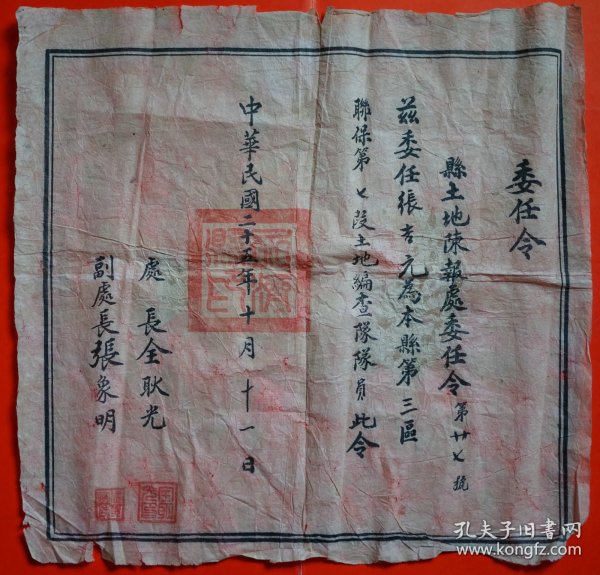 委任令
縣土地陳報處委任令第廿七號
茲委任張吉元為本縣第三區
聯保第七段土地編查隊隊員此令
中華民國二十五年十月十一日
處長全耿光
副處長張象明
孔夫子旧書网
www.kongfz.com